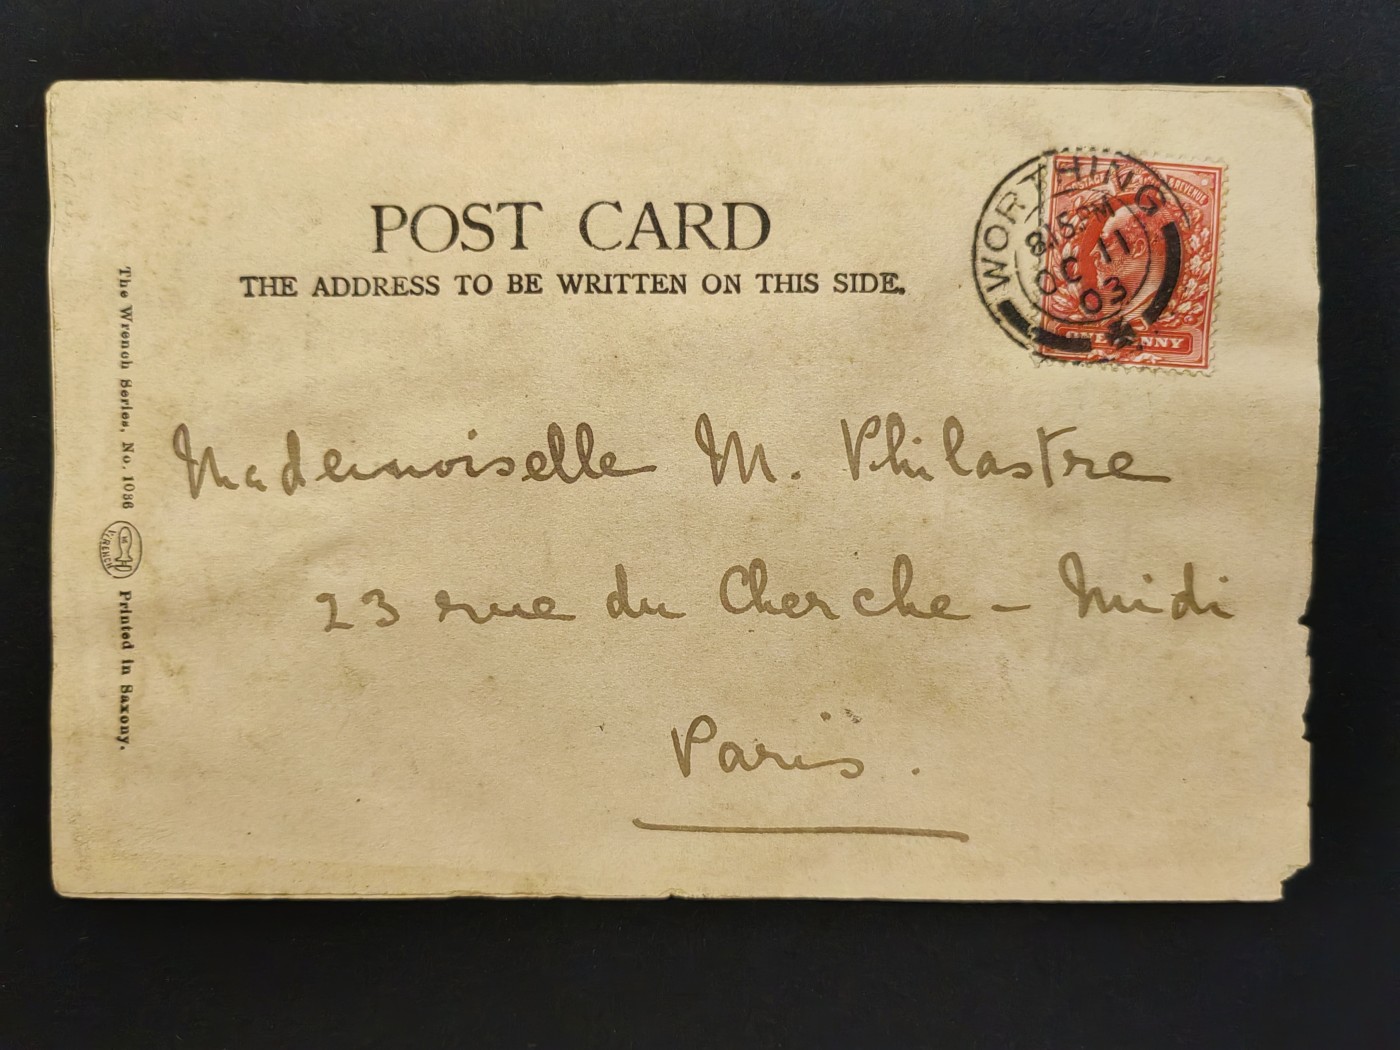 POST CARD
THE ADDRESS TO BE WRITTEN ON THIS SIDE.
WORTHING
8.15 PM
OC 11
03
POSTAGE & REVENUE
ONE PENNY
Mademoiselle M. Philastre
23 rue du Cherche - Midi
Paris.
The Wrench Series, No. 1086
WRENCH
Printed in Saxony.